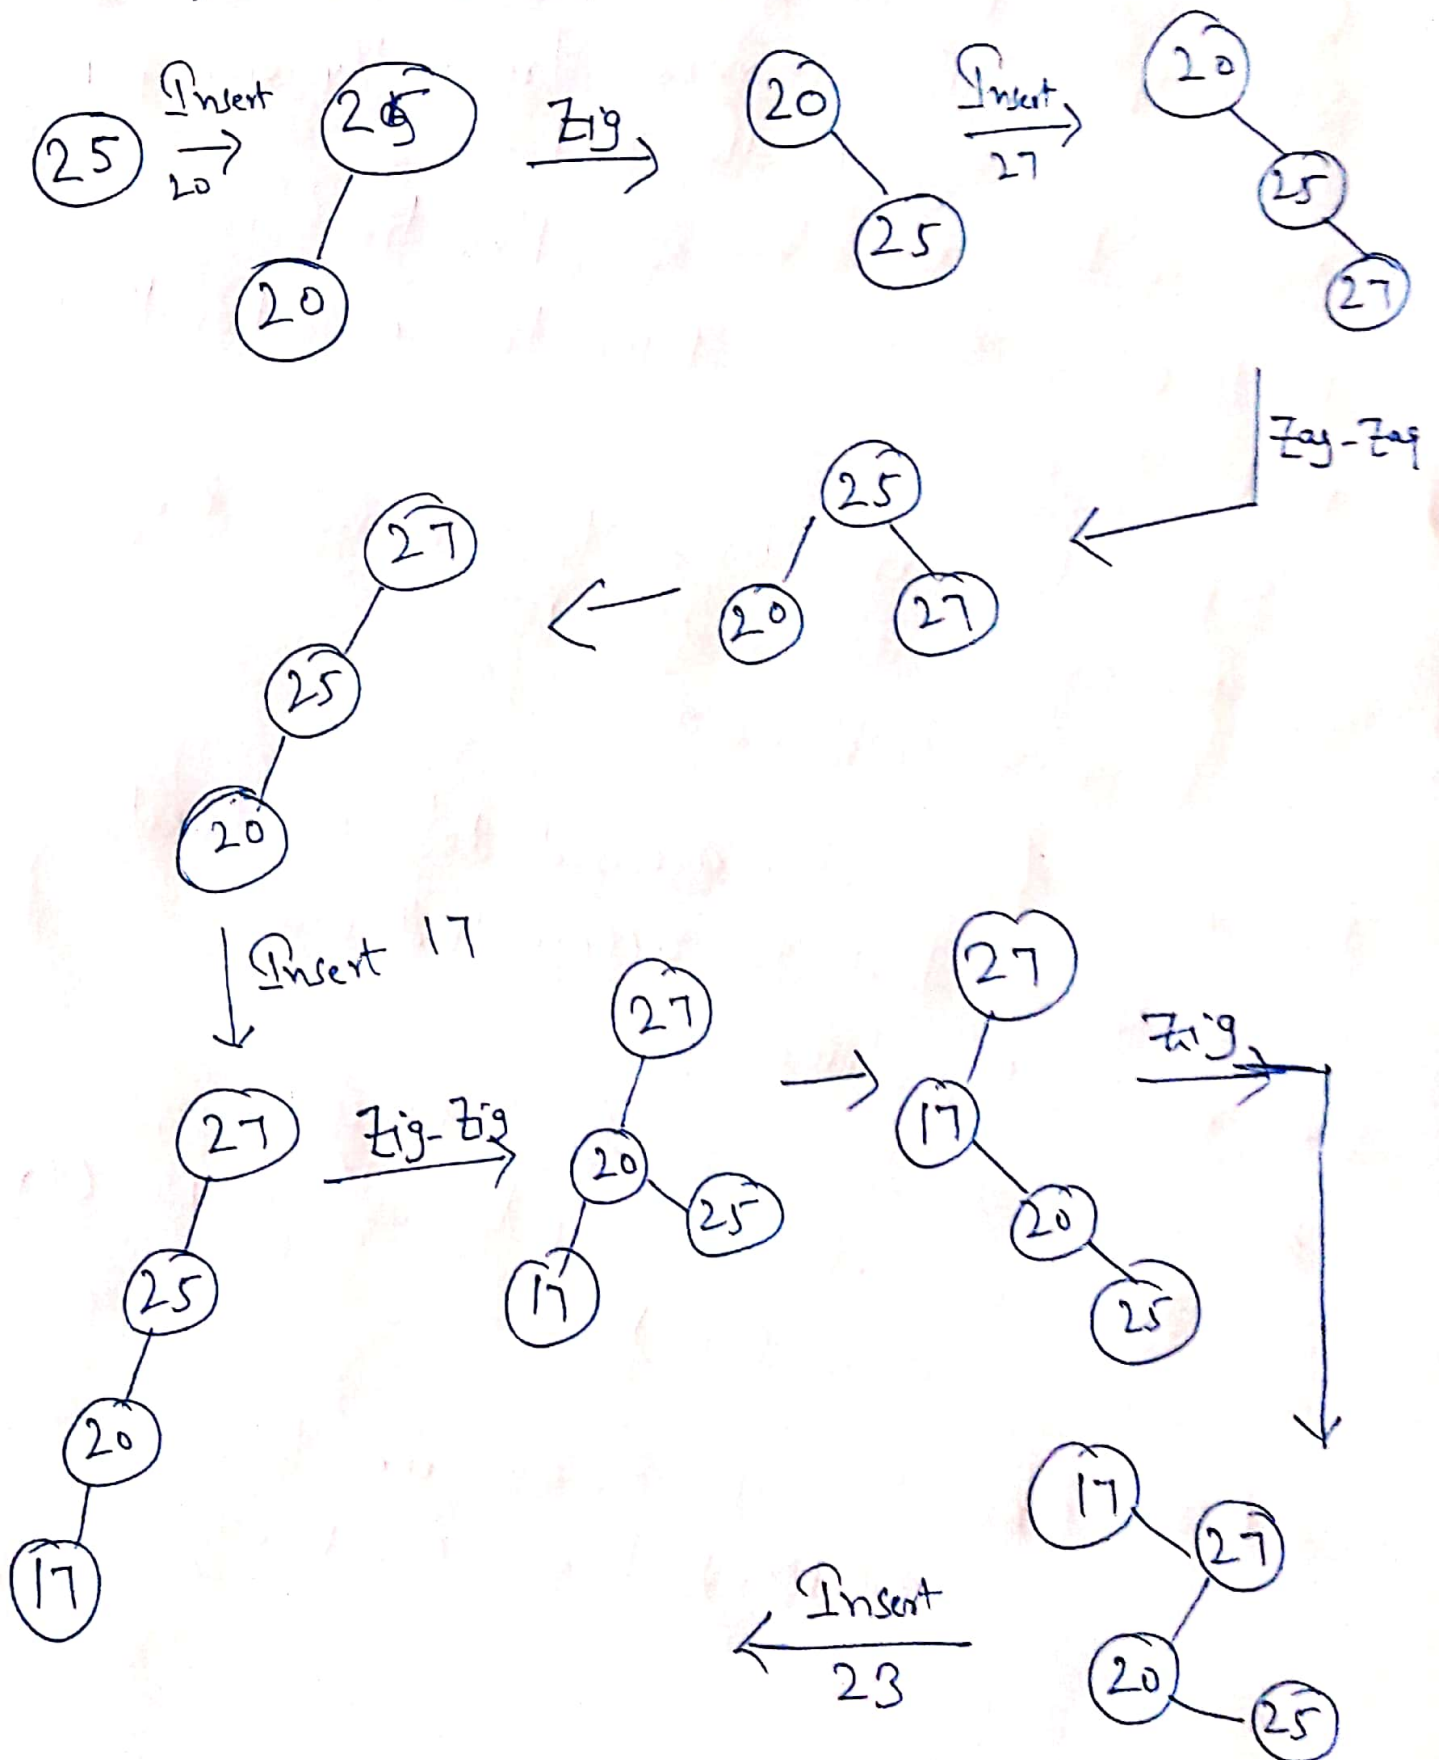 25
Insert
20
25
20
Zig
20
25
Insert
27
20
25
27
Zag-Zag
25
20
27
27
25
20
Insert 17
27
25
20
17
Zig-Zig
27
20
25
17
27
17
20
25
Zig
17
27
20
25
Insert
23